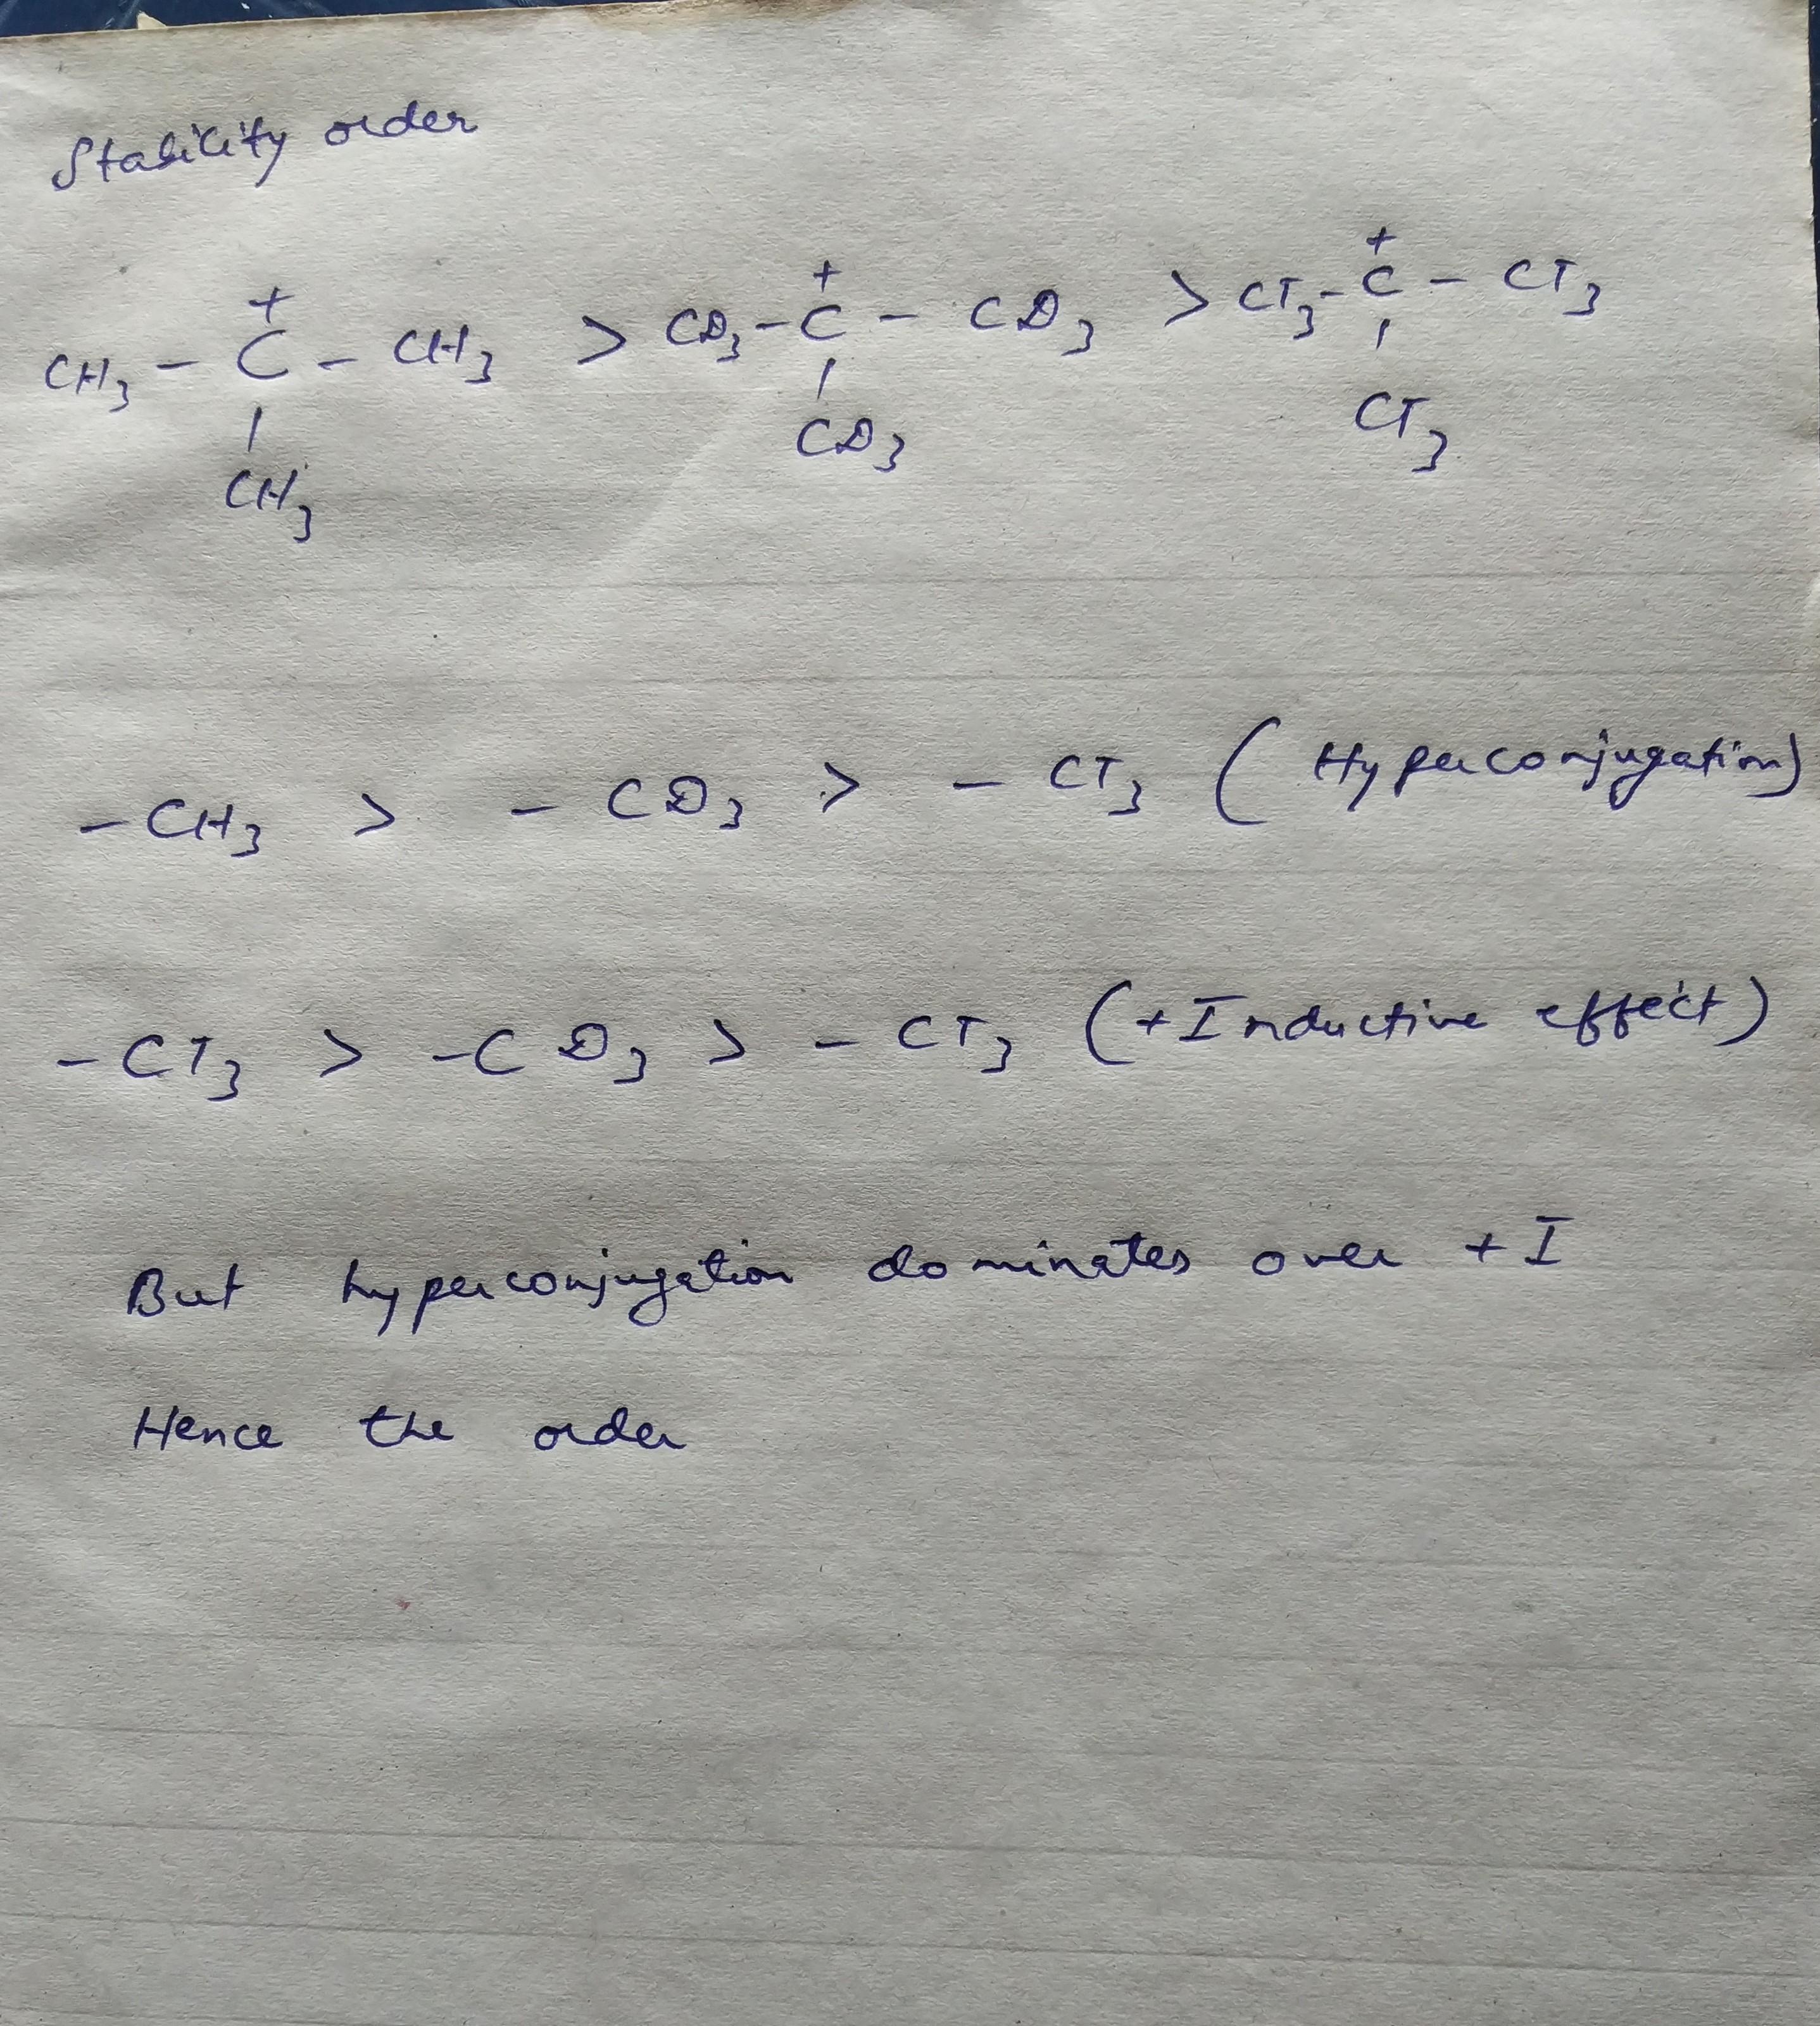 Stability order
CH3 - C+ - CH3 > CD3 - C+ - CD3 > CT3 - C+ - CT3
CH3 CD3 CT3
- CH3 > - CD3 > - CT3 (Hyperconjugation)
- CT3 > - CD3 > - CT3 (+Inductive effect)
But hyperconjugation dominates over + I
Hence the order